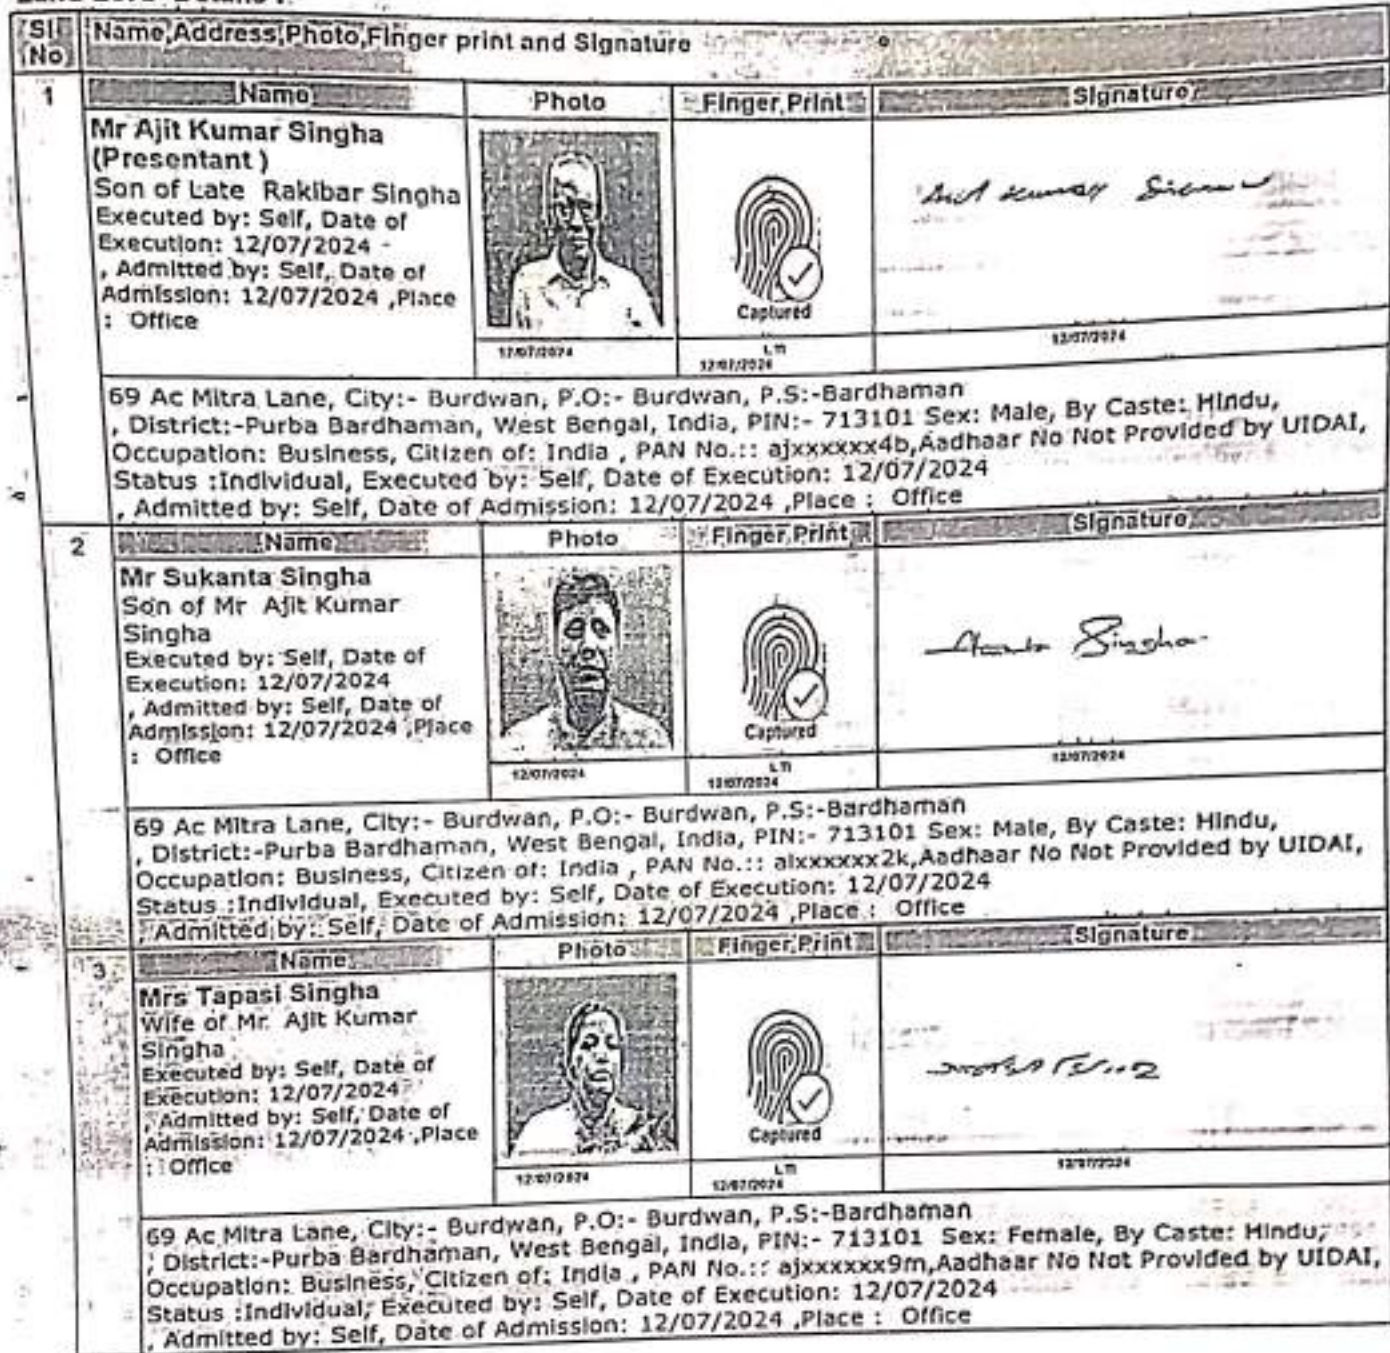 Sl No Name,Address,Photo,Finger print and Signature
1 Name Photo Finger Print Signature
Mr Ajit Kumar Singha
(Presentant )
Son of Late Rakibar Singha
Executed by: Self, Date of
Execution: 12/07/2024
, Admitted by: Self, Date of
Admission: 12/07/2024 ,Place
: Office
Captured
12/07/2024 LTI 12/07/2024 12/07/2024
69 Ac Mitra Lane, City:- Burdwan, P.O:- Burdwan, P.S:-Bardhaman
, District:-Purba Bardhaman, West Bengal, India, PIN:- 713101 Sex: Male, By Caste: Hindu,
Occupation: Business, Citizen of: India , PAN No.:: ajxxxxxx4b,Aadhaar No Not Provided by UIDAI,
Status :Individual, Executed by: Self, Date of Execution: 12/07/2024
, Admitted by: Self, Date of Admission: 12/07/2024 ,Place : Office
2 Name Photo Finger Print Signature
Mr Sukanta Singha
Son of Mr Ajit Kumar
Singha
Executed by: Self, Date of
Execution: 12/07/2024
, Admitted by: Self, Date of
Admission: 12/07/2024 ,Place
: Office
Singha
Captured
12/07/2024 LTI 12/07/2024 12/07/2024
69 Ac Mitra Lane, City:- Burdwan, P.O:- Burdwan, P.S:-Bardhaman
, District:-Purba Bardhaman, West Bengal, India, PIN:- 713101 Sex: Male, By Caste: Hindu,
Occupation: Business, Citizen of: India , PAN No.:: aixxxxxx2k,Aadhaar No Not Provided by UIDAI,
Status :Individual, Executed by: Self, Date of Execution: 12/07/2024
, Admitted by: Self, Date of Admission: 12/07/2024 ,Place : Office
3 Name Photo Finger Print Signature
Mrs Tapasi Singha
Wife of Mr. Ajit Kumar
Singha
Executed by: Self, Date of
Execution: 12/07/2024
, Admitted by: Self, Date of
Admission: 12/07/2024 ,Place
: Office
Captured
12/07/2024 LTI 12/07/2024 12/07/2024
69 Ac Mitra Lane, City:- Burdwan, P.O:- Burdwan, P.S:-Bardhaman
, District:-Purba Bardhaman, West Bengal, India, PIN:- 713101 Sex: Female, By Caste: Hindu,
Occupation: Business, Citizen of: India , PAN No.:: ajxxxxxx9m,Aadhaar No Not Provided by UIDAI,
Status :Individual, Executed by: Self, Date of Execution: 12/07/2024
, Admitted by: Self, Date of Admission: 12/07/2024 ,Place : Office